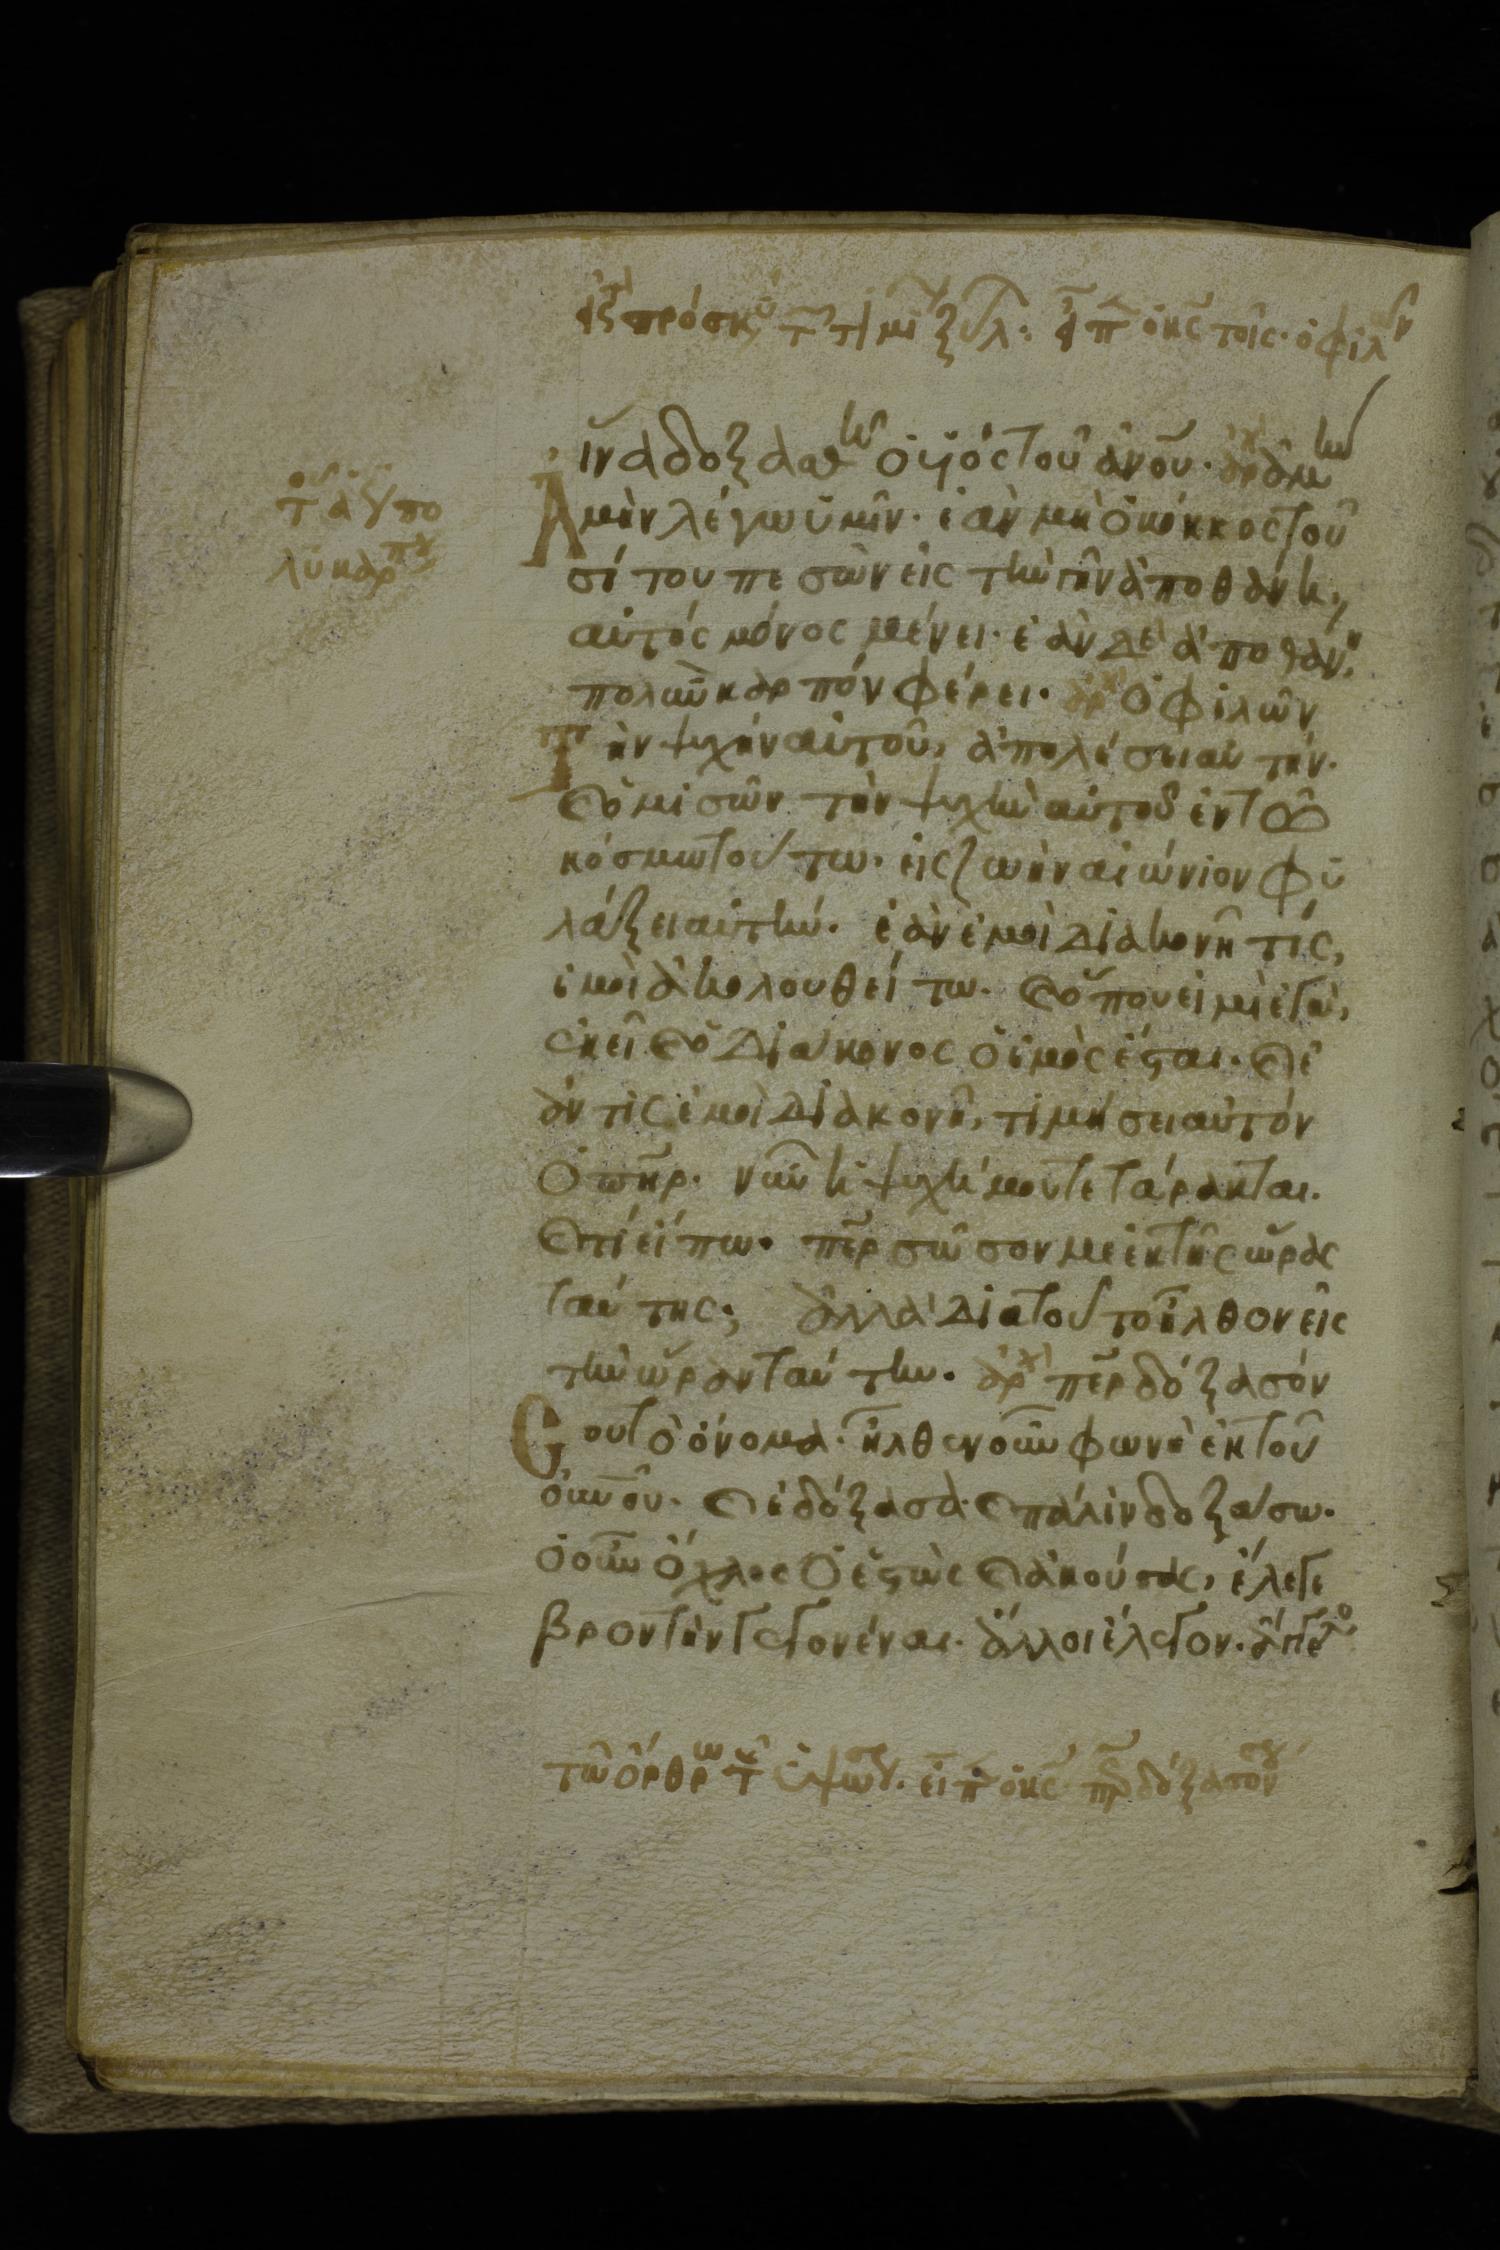 ἵνα δοξασθῆ ὁ υἱὸς τοῦ ἀνου. ἀρχ ἀμὴν
Ἀμὴν λέγω ὑμῖν. ἐὰν μὴ ὁ κόκκος τοῦ
σίτου πεσὼν εἰς τὴν γῆν ἀποθάνη,
αὐτὸς μόνος μένει. ἐὰν δὲ ἀποθάνη,
πολὺν καρπόν φέρει. ἀρχ ὁ φιλῶν
Τὴν ψυχὴν αὐτοῦ, ἀπολέσει αὐτήν.
κ ὁ μισῶν τὴν ψυχὴν αὐτοῦ ἐν τῶ
κόσμω τούτω. εἰς ζωὴν αἰώνιον φυ
λάξει αὐτήν. ἐὰν ἐμοὶ διακονῆ τίς,
ἐμοὶ ἀκολουθείτω. κ ὅπου εἰμὶ ἐγὼ,
ἐκεῖ κ ὁ διάκονος ὁ ἐμὸς ἔσται. κ ἐ
άν τις ἐμοὶ διακονῆ, τιμήσει αὐτόν
ὁ πηρ. νῦν ἡ ψυχή μου τετάρακται.
κ τί εἴπω. περ σῶσον με ἐκ τῆς ὥρας
ταύτης; ἀλλὰ διατοῦτο ἦλθον εἰς
τὴν ὥραν ταύτην. ἀρχ περ δόξασόν
Σου τὸ ὄνομα. ἦλθεν οὖν φωνὴ ἐκ τοῦ
οὐνου. κ ἐδόξασα κ πάλιν δοξάσω.
ὁ οὖν ὄχλος ὁ ἑστὼς κ ἀκούσας, ἔλεγε
βροντὴν γεγονέναι. ἄλλοι ἔλεγον. ἄγγελο